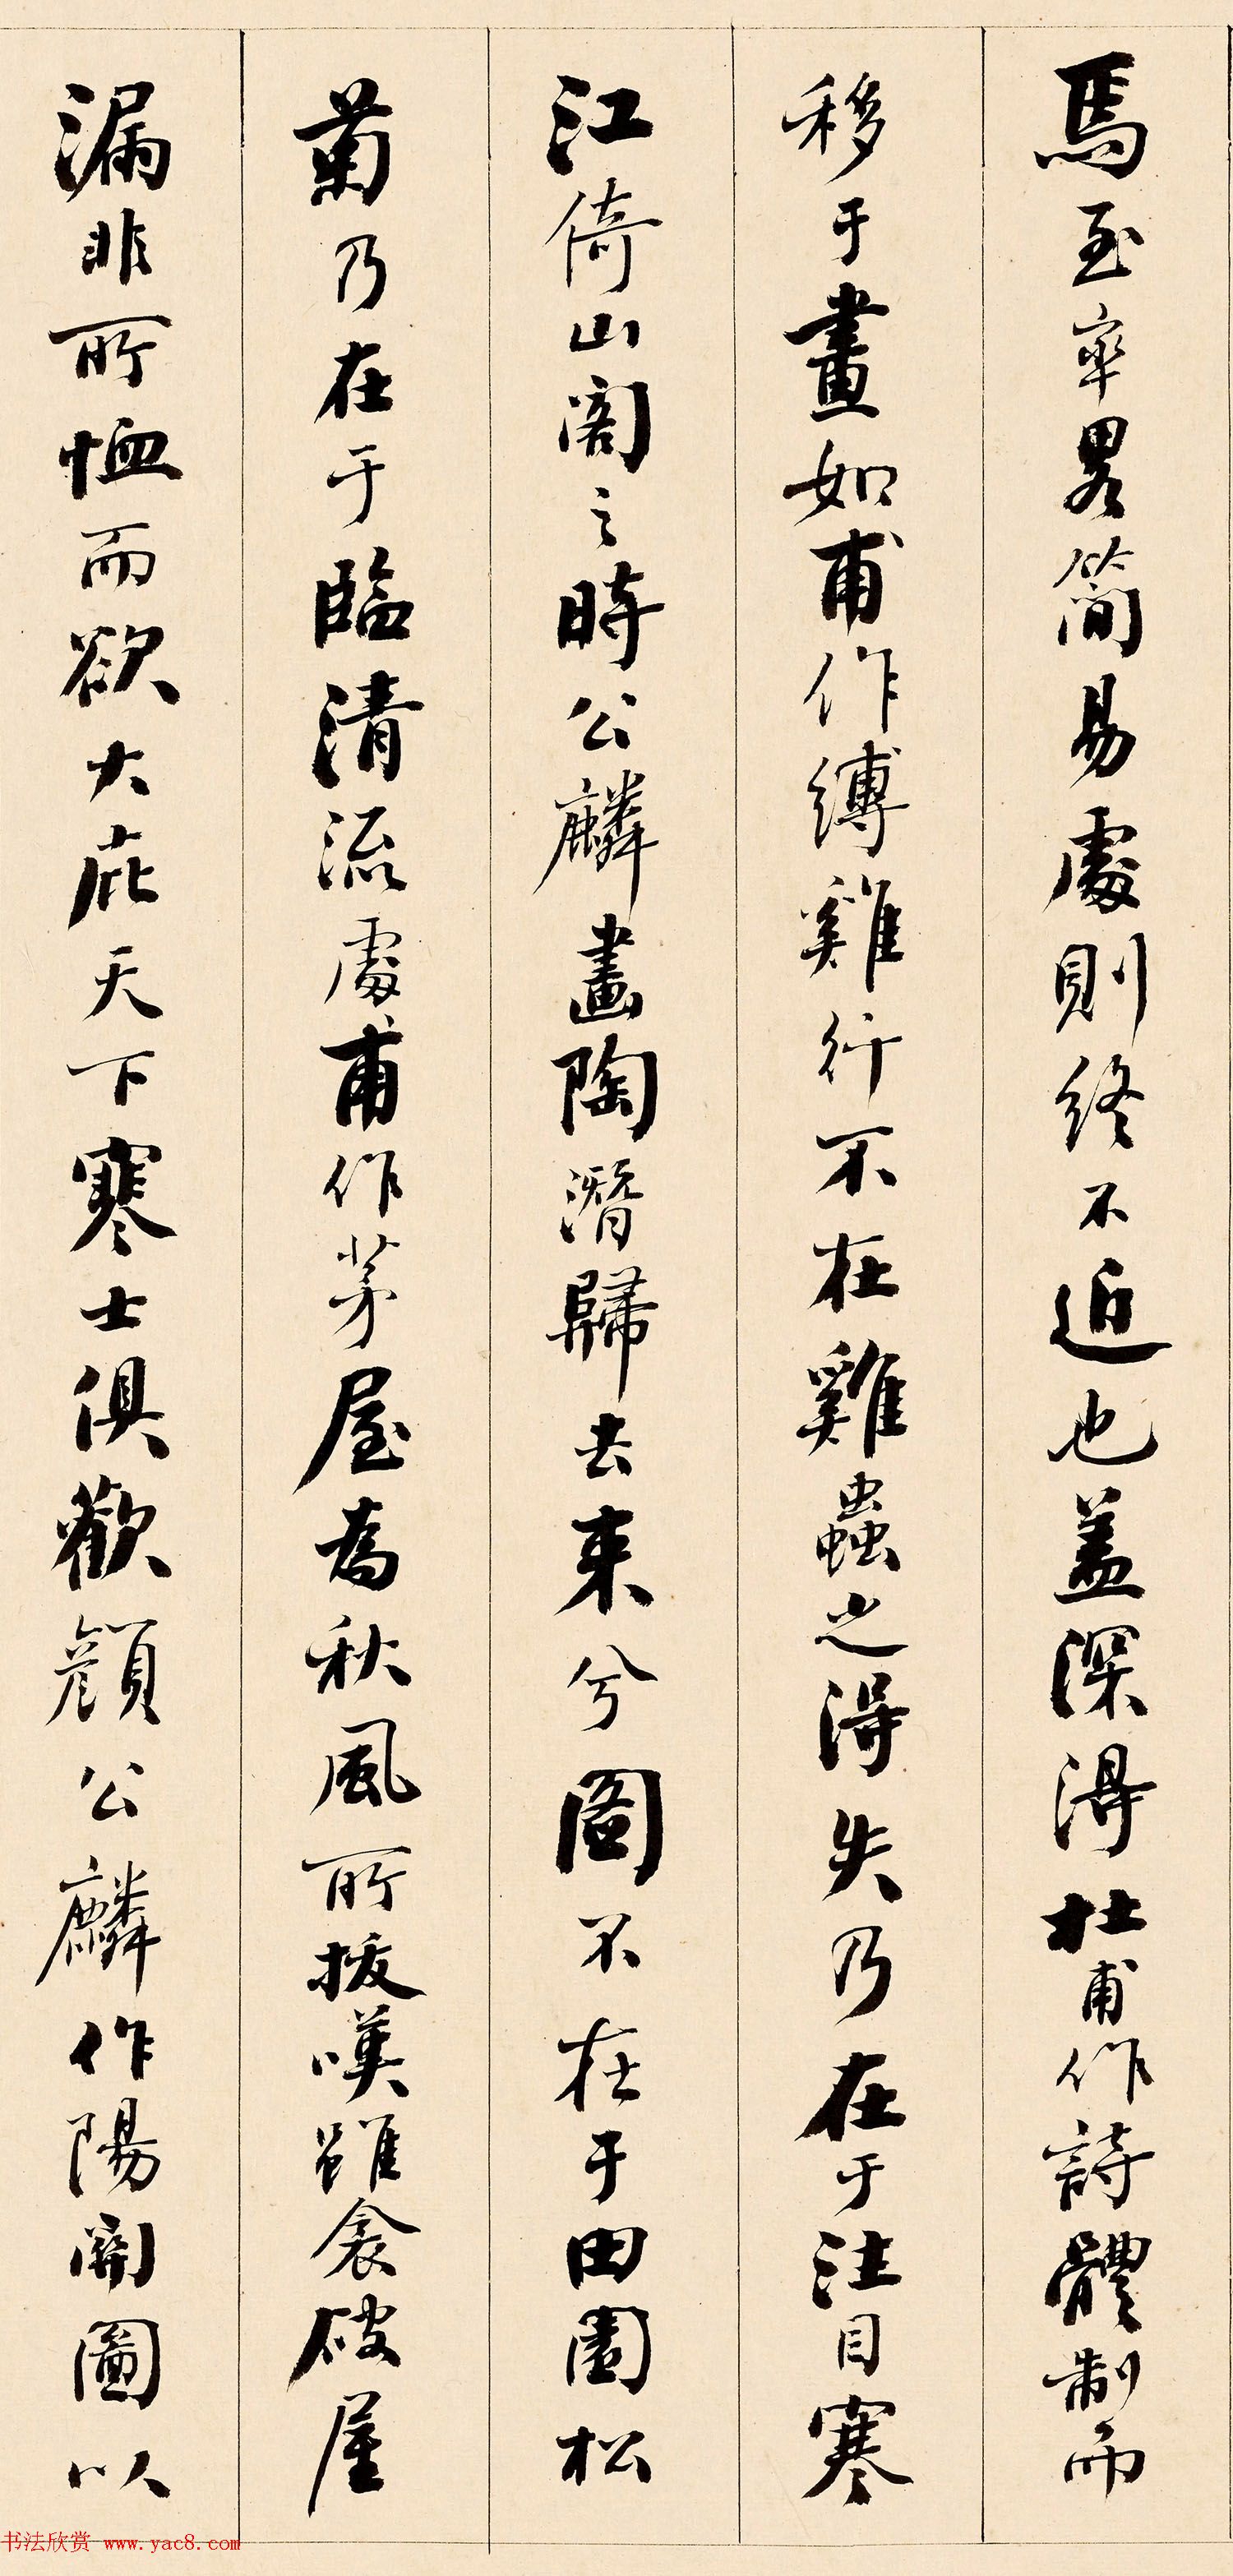 焉至率畧簡易處則終不近也盖深得杜甫作詩體制而
移于畫如甫作縛雞行不在雞蟲之得失乃在于注目寒
江倚山閣之時公麟畫陶潛歸去来兮圖不在于田園松
菊乃在于臨清流處甫作茅屋為秋風所拔嘆雖衾破屋
漏非所恤而欲大庇天下寒士俱歡顔公麟作陽關圖以
书法欣赏 www.yac8.com